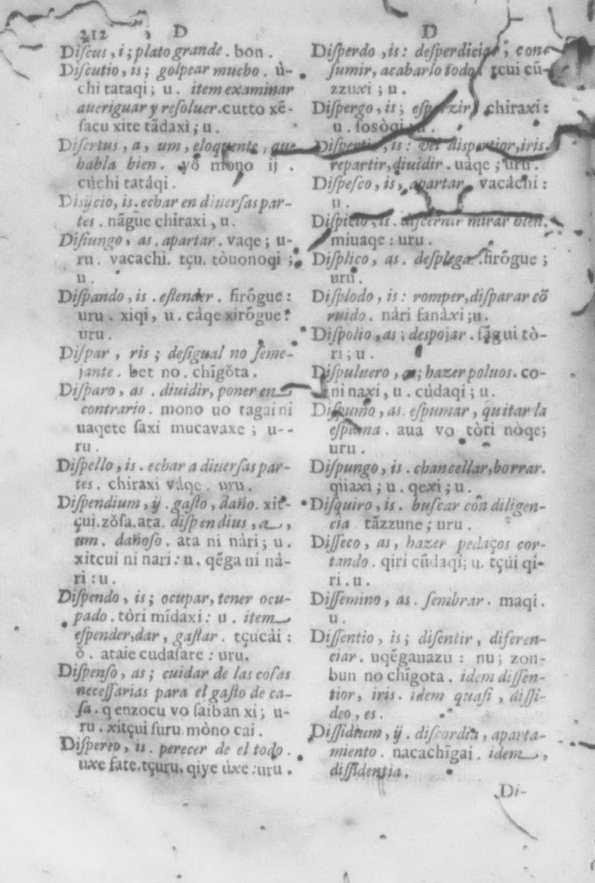 212 D
Diſcus, i; plato grande. bon.
Diſcutio, is; golpear mucho. ù-
chi tataqi; u. item examinar
aueriguar y reſoluer. cutto xē-
ſacu xite tādaxi; u.
Diſertus, a, um, eloquente, que
habla bien. yǒ mono ij.
cùchi tatáqi.
is. echar en diuerſas par-
tes. nāgue chiraxi, u.
Diſiungo, as. apartar. vaqe; u-
ru. vacachi. tçu. tòuonoqi;
u.
Diſpando, is. eſtender. firǒgue:
uru. xiqi, u. cáqe xirǒgue:
uru.
Diſpar, ris; deſigual no ſeme-
jante. bet no. chīgǒta.
Diſparo, as. diuidir, poner en
contrario. mono uo tagaini
uaqete ſaxi mucavaxe; u--
ru.
Diſpello, is. echar a diuerſas par-
tes. chiraxi vàqe. uru.
Diſpendium, ÿ. gaſto, daño. xit-
çui. zǒſa. ata. diſpendius, a,
um. dañoſo. ata ni nári; u.
xitcui ni nari: u. qēga ni ná-
ri: u.
Diſpendo, is; ocupar, tener ocu-
pado. tòri mīdaxi: u. item
eſpender, dar, gaſtar. tçucài:
ǒ. ataie cudaſare: uru.
Diſpenſo, as; cuidar de las coſas
neceſſarias para el gaſto de ca-
ſa. qenzocu vo ſaiban xi; u-
ru. xitçui ſuru mòno cai.
Diſpereo, is. perecer de el todo.
uxe fate. tçuru. qiye úxe: uru.
D
Diſperdo, is: deſperdiciar; con-
ſumir, acabarlo todo. tçui cū-
zzuxi; u.
Diſpergo, is; eſparzir. chiraxi:
u. foſòqi. u.
is: vel diſpertior, iris.
repartir, diuidir. uáqe; uru.
Diſpeſco, is, apartar. vacàchi:
u.
Diſpicio, is. diſcernir mirar bien.
miuaqe: uru.
Diſplico, as. deſplegar. firǒgue;
uru.
Diſplodo, is: romper, diſparar cō
ruido. nàri fanàxi; u.
Diſpolio, as; deſpojar. fāgui tò-
ri; u.
Diſpuluero, as; hazer poluos. co-
ni naxi, u. cúdaqi; u.
Diſpumo, as. eſpumar, quitar la
eſpuma. aua vo tòri nòqe;
uru.
Diſpungo, is. chancellar, borrar.
qiiaxi; u. qexi; u.
Diſquiro, is. buſcar con diligen-
cia. tāzzune; uru.
Diſſeco, as, hazer pedaços cor-
tando. qiri cūdaqi; u. tçúi qi-
ri. u.
Diſſemino, as. ſembrar. maqi.
u.
Diſſentio, is; diſentir, diferen-
ciar. uqēganazu: nu; zon-
bun no chīgota. idem diſſen-
tior, iris. idem quaſi, diſſi-
deo, es.
Diſſidium, ÿ. diſcordia, aparta-
miento. nacachīgai. idem,
diſſidentia.
Di-